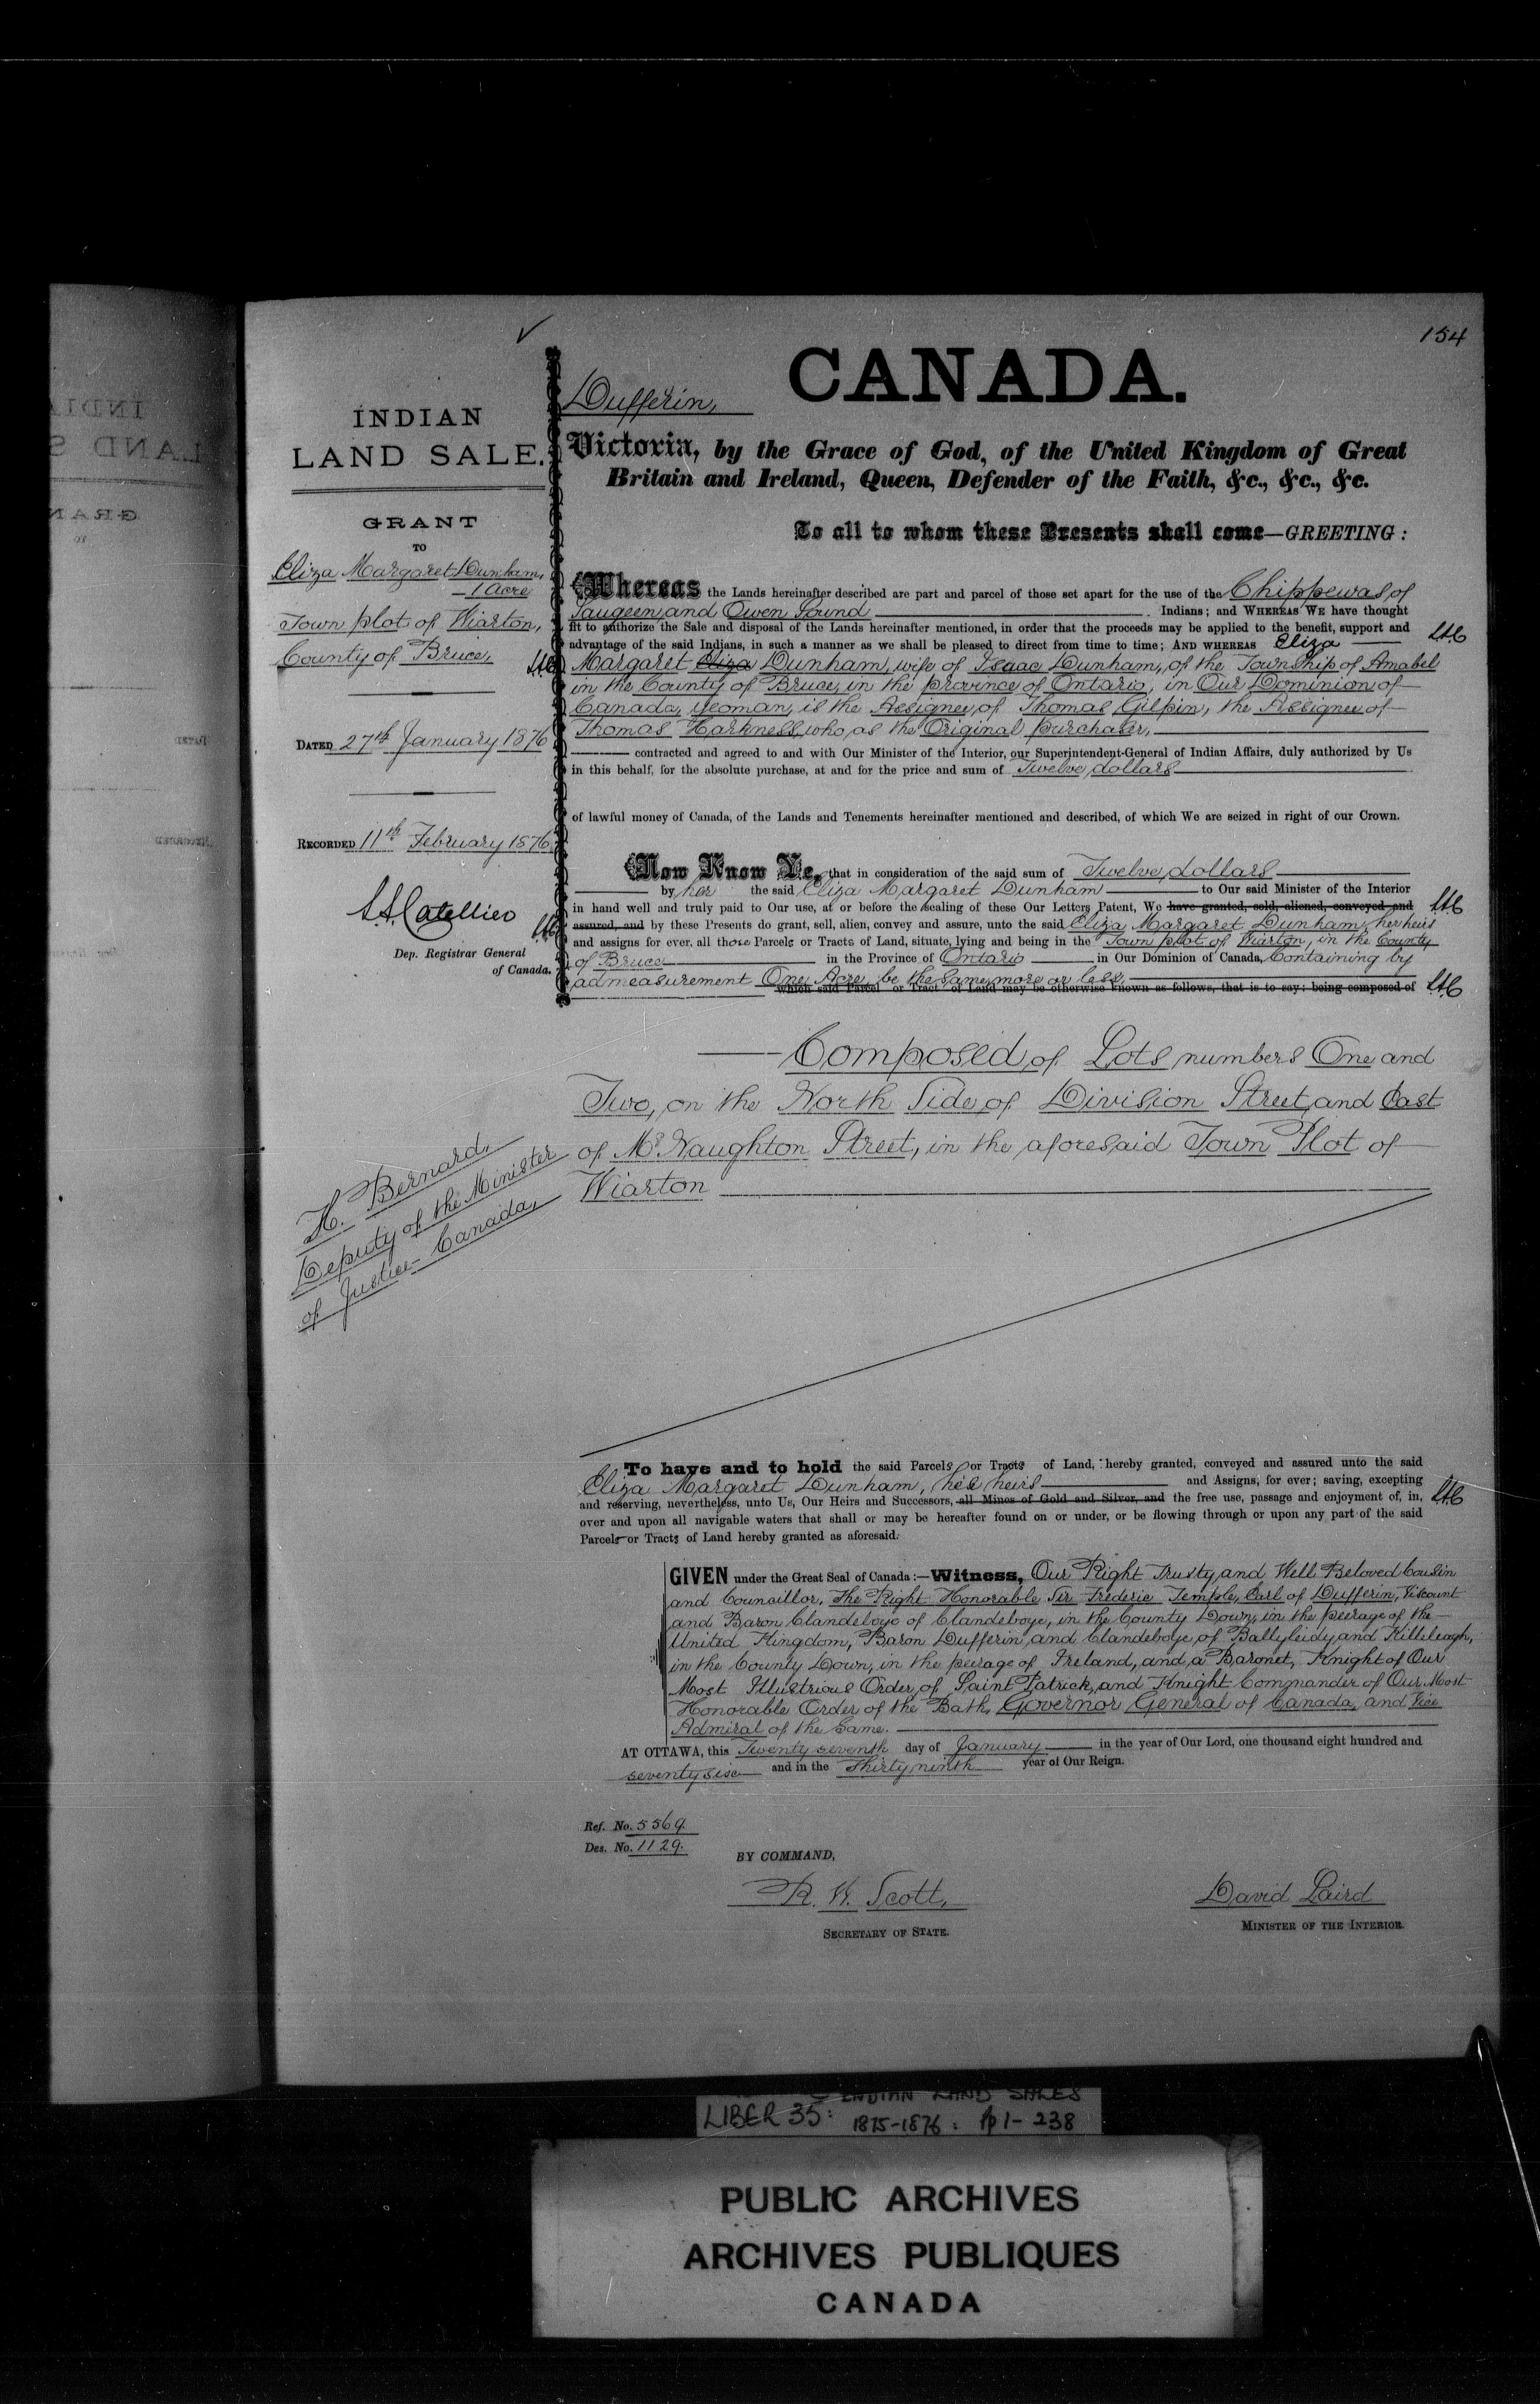 154
CANADA.
Dufferin,
INDIAN
LAND SALE.
GRANT
TO
Eliza Margaret Dunham,
- 1 Acre
Town plot of Wiarton,
County of Bruce,
DATED 27th January 1876
RECORDED 11th February 1876
L.A. Catellier
Dep. Registrar General
of Canada.
H. Bernard,
Deputy of the Minister
of Justice - Canada,
Victoria, by the Grace of God, of the United Kingdom of Great
Britain and Ireland, Queen, Defender of the Faith, &c., &c., &c.
To all to whom these Presents shall come—GREETING:
Whereas the Lands hereinafter described are part and parcel of those set apart for the use of the Chippewas of
Saugeen and Owen Sound Indians; and WHEREAS WE have thought
fit to authorize the Sale and disposal of the Lands hereinafter mentioned, in order that the proceeds may be applied to the benefit, support and
advantage of the said Indians, in such a manner as we shall be pleased to direct from time to time; AND WHEREAS Eliza LAC
LAC Margaret Eliza Dunham, wife of Isaac Dunham, of the Township of Amabel
in the County of Bruce, in the province of Ontario, in Our Dominion of
Canada, yeoman, is the Assignee of Thomas Gilpin, the Assignee of
Thomas Harkness, who, as the Original purchaser,
contracted and agreed to and with Our Minister of the Interior, our Superintendent-General of Indian Affairs, duly authorized by Us
in this behalf, for the absolute purchase, at and for the price and sum of Twelve dollars
of lawful money of Canada, of the Lands and Tenements hereinafter mentioned and described, of which We are seized in right of our Crown.
Now Know Ye, that in consideration of the said sum of Twelve dollars
by her the said Eliza Margaret Dunham to Our said Minister of the Interior
in hand well and truly paid to Our use, at or before the sealing of these Our Letters Patent, We have granted, sold, aliened, conveyed and LAC
LAC assured, and by these Presents do grant, sell, alien, convey and assure, unto the said Eliza Margaret Dunham, her heirs
and assigns for ever, all those Parcels or Tracts of Land, situate, lying and being in the Town plot of Wiarton, in the County
of Bruce in the Province of Ontario in Our Dominion of Canada, Containing by
admeasurement One Acre, be the same more or less,
which said Parcel or Tract of Land may be otherwise known as follows, that is to say: being composed of LAC
Composed of Lots numbers One and
Two, on the North Side of Division Street, and East
of McNaughton Street, in the aforesaid Town Plot of
Wiarton
To have and to hold the said Parcels or Tracts of Land, hereby granted, conveyed and assured unto the said
Eliza Margaret Dunham, her heirs and Assigns, for ever; saving, excepting
and reserving, nevertheless, unto Us, Our Heirs and Successors, all Mines of Gold and Silver, and the free use, passage and enjoyment of, in, LAC
over and upon all navigable waters that shall or may be hereafter found on or under, or be flowing through or upon any part of the said
Parcels or Tracts of Land hereby granted as aforesaid.
GIVEN under the Great Seal of Canada:—Witness, Our Right Trusty and Well Beloved Cousin
and Councillor, The Right Honorable Sir Frederic Temple, Earl of Dufferin, Viscount
and Baron Clandeboye of Clandeboye, in the County Down, in the peerage of the
United Kingdom, Baron Dufferin and Clandeboye of Ballyleidy and Killileagh,
in the County Down, in the peerage of Ireland, and a Baronet, Knight of Our
Most Illustrious Order of Saint Patrick, and Knight Commander of Our Most
Honorable Order of the Bath, Governor General of Canada, and Vice
Admiral of the same.
AT OTTAWA, this Twenty seventh day of January in the year of Our Lord, one thousand eight hundred and
seventy six and in the Thirty ninth year of Our Reign.
Ref. No. 5569.
Des. No. 1129.
BY COMMAND,
R. W. Scott,
SECRETARY OF STATE.
David Laird
MINISTER OF THE INTERIOR.
INDIAN LAND SALES
LIBER 35: 1875-1876: pp 1-238
PUBLIC ARCHIVES
ARCHIVES PUBLIQUES
CANADA